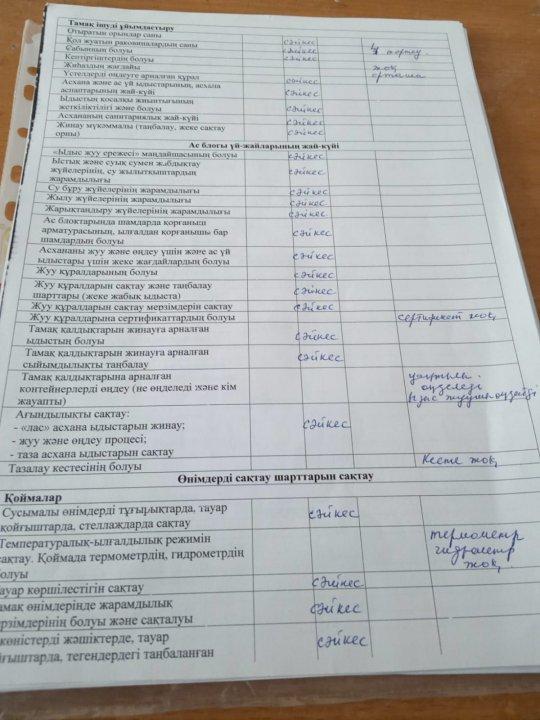 Тамақ ішуді ұйымдастыру
Отыратын орындар саны
Қол жуатын раковиналардың саны сәйкес
Сабынның болуы сәйкес
Кептіргіштердің болуы сәйкес
Жиһаздың жағдайы жоқ
Үстелдерді өңдеуге арналған құрал орташа
Асхана және ас үй ыдыстарының, асхана сәйкес
аспаптарының жай-күйі
Ыдыстың қосалқы жиынтығының
жеткіліктілігі және болуы сәйкес
Асхананың санитариялық жай-күйі сәйкес
Жинау мүкәммалы (таңбалау, жеке сақтау сәйкес
орны)
Ас блогы үй-жайларының жай-күйі
«Ыдыс жуу ережесі» маңдайшасының болуы сәйкес
Ыстық және суық сумен жабдықтау
жүйелерінің, су жылытқыштардың сәйкес
жарамдылығы
Су бұру жүйелерінің жарамдылығы сәйкес
Жылу жүйелерінің жарамдылығы сәйкес
Жарықтандыру жүйелерінің жарамдылығы сәйкес
Ас блоктарында шамдарда қорғаныш
арматурасының, ылғалдан қорғанышы бар сәйкес
шамдардың болуы
Асхананы жуу және өңдеу үшін және ас үй
ыдыстары үшін жеке жағдайлардың болуы сәйкес
Жуу құралдарының болуы сәйкес
Жуу құралдарын сақтау және таңбалау
шарттары (жеке жабық ыдыста) сәйкес
Жуу құралдарын сақтау мерзімдерін сақтау сәйкес
Жуу құралдарына сертификаттардың болуы сертификат жоқ
Тамақ қалдықтарын жинауға арналған
ыдыстың болуы сәйкес
Тамақ қалдықтарын жинауға арналған
сыйымдылықты таңбалау сәйкес
Тамақ қалдықтарына арналған
контейнерлерді өңдеу (не өңделеді және кім өңделеді
жауапты) ыдыс жуушы
Ағындылықты сақтау:
- «лас» асхана ыдыстарын жинау; сәйкес
- жуу және өңдеу процесі;
- таза асхана ыдыстарын сақтау
Тазалау кестесінің болуы Кесте жоқ
Өнімдерді сақтау шарттарын сақтау
Қоймалар
Сусымалы өнімдерді тұғырықтарда, тауар сәйкес
қойғыштарда, стеллаждарда сақтау
Температуралық-ылғалдылық режимін термометр
сақтау. Қоймада термометрдің, гидрометрдің гидрометр
болуы жоқ
ауар көршілестігін сақтау сәйкес
амақ өнімдерінде жарамдылық
ерзімдерінің болуы және сақталуы сәйкес
көкөністерді жәшіктерде, тауар
йғыштарда, тегендердегі таңбаланған сәйкес